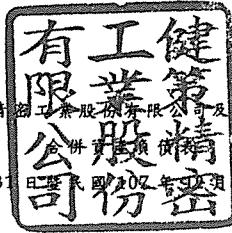 健策精密
工業股份
有限公司
密工業股份有限公司及
合併資產負債表
日 民國 107 年